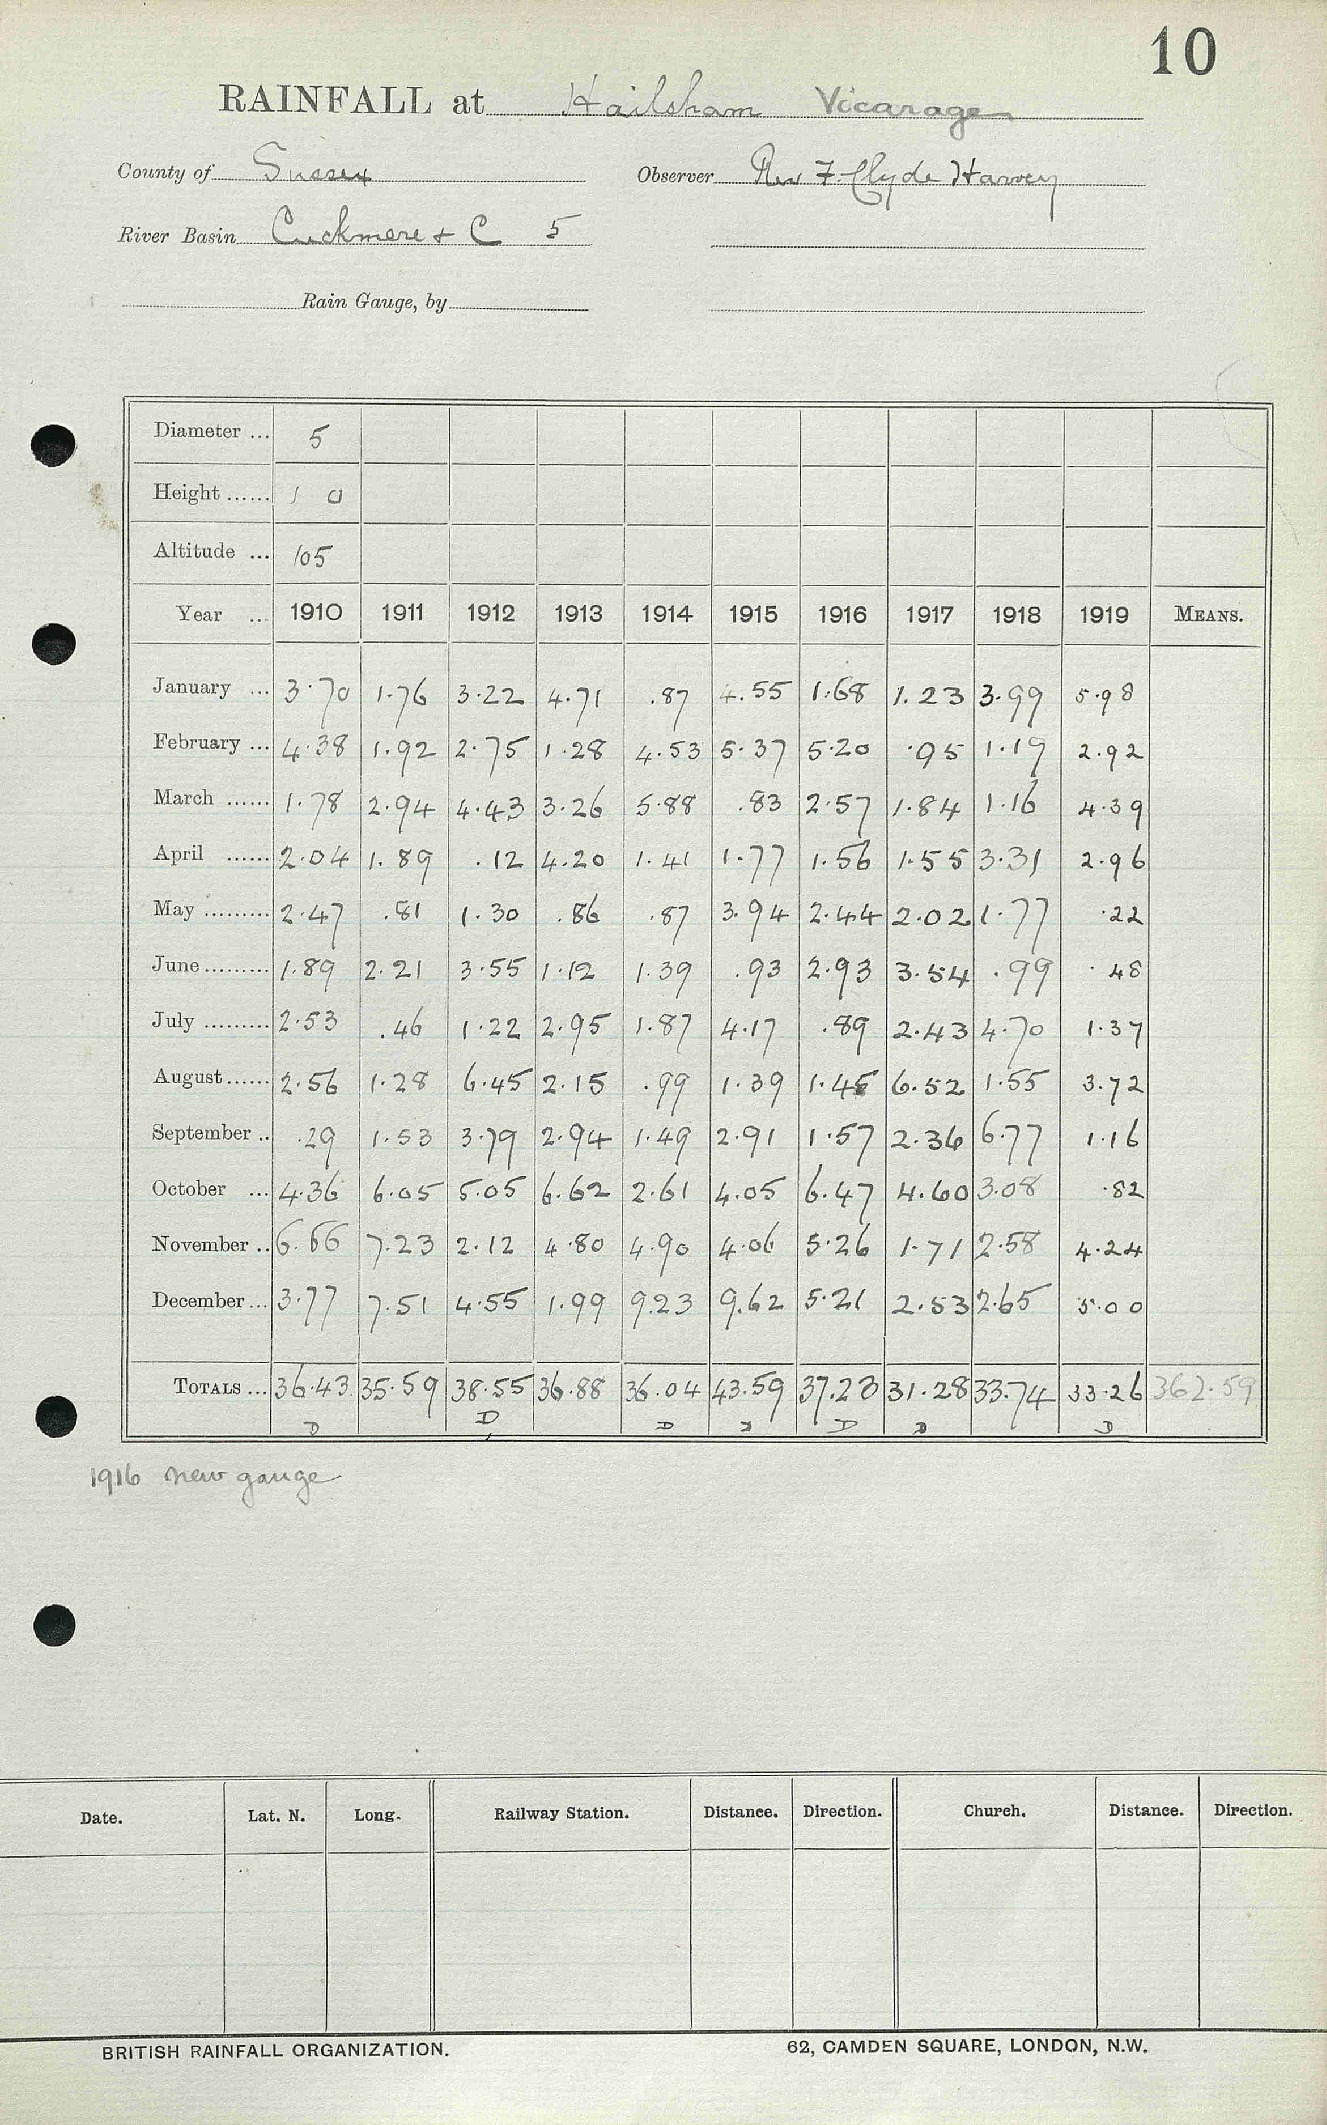 10
RAINFALL at Hailsham Vicarage
County of Sussex Observer Rev F. Clyde Harvey
River Basin Cuckmere & C 5
Rain Gauge, by
Diameter ... 5
Height ...... 1 0
Altitude ... 105
Year ... 1910 1911 1912 1913 1914 1915 1916 1917 1918 1919 MEANS.
January ... 3.70 1.76 3.22 4.71 .87 4.55 1.68 1.23 3.99 5.98
February ... 4.38 1.92 2.75 1.28 4.53 5.37 5.20 .95 1.19 2.92
March ...... 1.78 2.94 4.43 3.26 5.88 .83 2.57 1.84 1.16 4.39
April ...... 2.04 1.89 .12 4.20 1.41 1.77 1.56 1.55 3.31 2.96
May ......... 2.47 .81 1.30 .86 .87 3.94 2.44 2.02 1.77 .22
June ......... 1.89 2.21 3.55 1.12 1.39 .93 2.93 3.54 .99 .48
July ......... 2.53 .46 1.22 2.95 1.87 4.17 .89 2.43 4.70 1.37
August ...... 2.56 1.28 6.45 2.15 .99 1.39 1.45 6.52 1.55 3.72
September .. .29 1.53 3.79 2.94 1.49 2.91 1.57 2.36 6.77 1.16
October ... 4.36 6.05 5.05 6.62 2.61 4.05 6.47 4.60 3.08 .82
November .. 6.66 7.23 2.12 4.80 4.90 4.06 5.26 1.71 2.58 4.24
December ... 3.77 7.51 4.55 1.99 9.23 9.62 5.21 2.53 2.65 5.00
TOTALS ... 36.43 35.59 38.55 36.88 36.04 43.59 37.23 31.28 33.74 33.26 362.59
D D D D D D D
1916 new gauge
Date. Lat. N. Long. Railway Station. Distance. Direction. Church. Distance. Direction.
BRITISH RAINFALL ORGANIZATION. 62, CAMDEN SQUARE, LONDON, N.W.